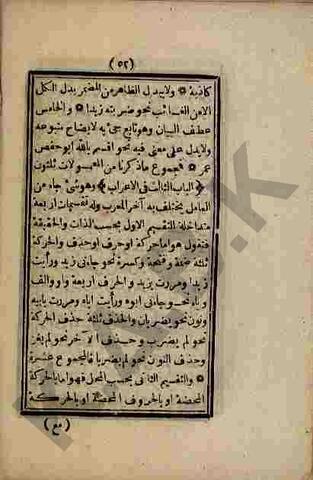 (٥٢)
كاذبة ۞ ولا يبدل الظاهر من المضمر بدل الكل
الا من الغائب نحو ضربته زيدا ۞ والخامس
عطف البيان وهو تابع جئ به لايضاح متبوعه
ولا يدل على معنى فيه نحو اقسم بالله ابو حفص
عمر ۞ فمجموع ما ذكرنا من المعمولات ثلثون
﴿الباب الثالث فى الاعراب﴾ وهو شئ جاء من
العامل يختلف به آخر المعرب وله تقسيمات اربعة
متداخلة التقسيم الاول بحسب الذات والحقيقة
فنقول هو اما حركة او حرف او حذف والحركة
ثلثة ضمة وفتحة وكسرة نحو جاءنى زيد ورأيت
زيدا ومررت بزيد والحرف اربعة واو والف
وياء نحو جاءنى ابوه ورأيت اباه ومررت بابيه
ونون نحو يضربان والحذف ثلثة حذف الحركة
نحو لم يضرب وحذف الآخر نحو لم يغز
وحذف النون نحو لم يضربا فالمجموع عشرة
۞ والتقسيم الثانى بحسب المحل فهو اما بالحركة
المحضة او بالحروف المحضة او بالحركة
(مع)